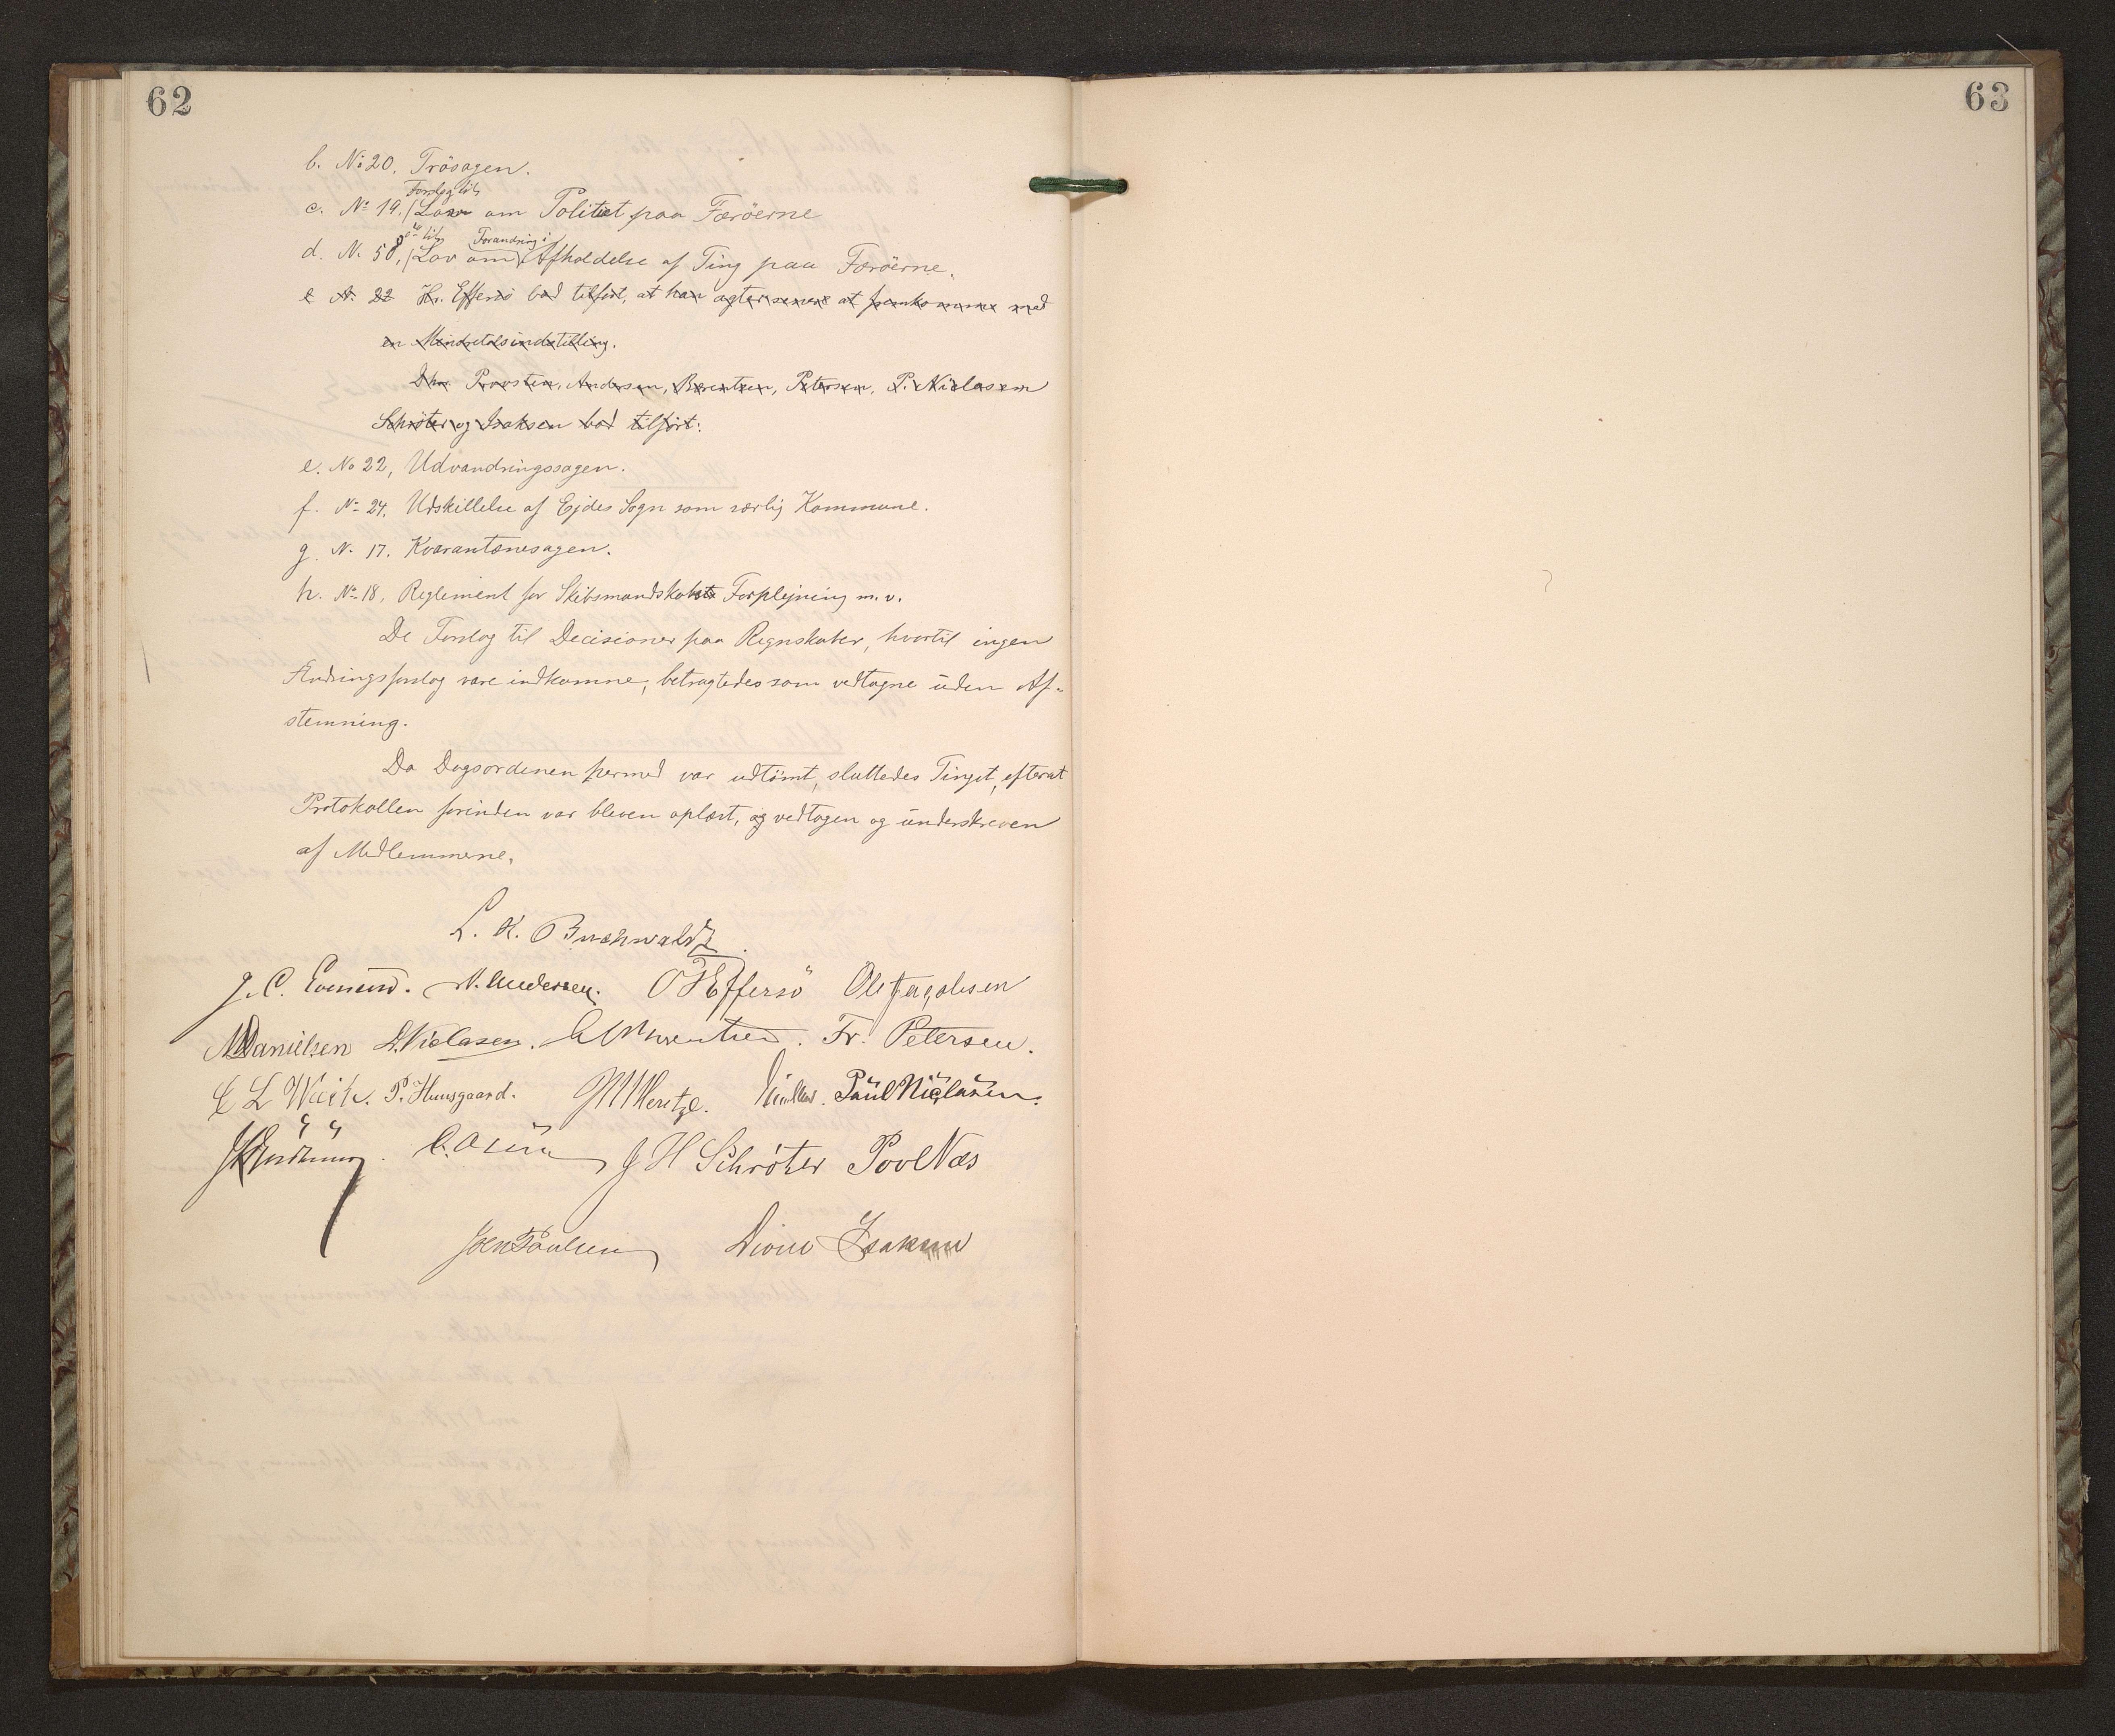 62
63
b. No 20. Trösagen.
Forslag til
c. No 19. Lov om Politiet paa Færöerne
do til Forandring i
d. N. 58, Lov om Afholdelse af Ting paa Færöerne.
e N. 22 Hr. Effersö bad tilfört, at han agter senere at fremkomme med
en Mindretalsindstilling.
Dhr. Provsten, Andersen, Bærentsen, Petersen, P. Niclasen
Schröter og Isaksen bad tilfört:
e. No 22, Udvandringssagen.
f. No 24. Udskillelse af Ejdes Sogn som særlig Kommune.
g. N. 17. Kvarantænesagen.
h. No 18. Reglement for Skibsmandskabets Forplejning m.v.
De Forslag til Decisioner paa Regnskaber, hvortil ingen
Ændringsforslag vare indkomne, betragtedes som vedtagne uden Af-
stemning.
Da Dagsordenen hermed var udtömt, sluttedes Tinget, efterat
Protokollen forinden var bleven oplæst, og vedtagen og underskreven
af Medlemmerne.
L. K. Buchwaldt.
J. C. Evensen. N. Andersen. O Effersö Ole Jacobsen
M Danielsen A. Niclasen. Fr. Petersen.
E L Weihe. P. Huusgaard. Müller. Paul Niclasen.
J H Schröter Poul Næs
Joen Poulsen Isaksen